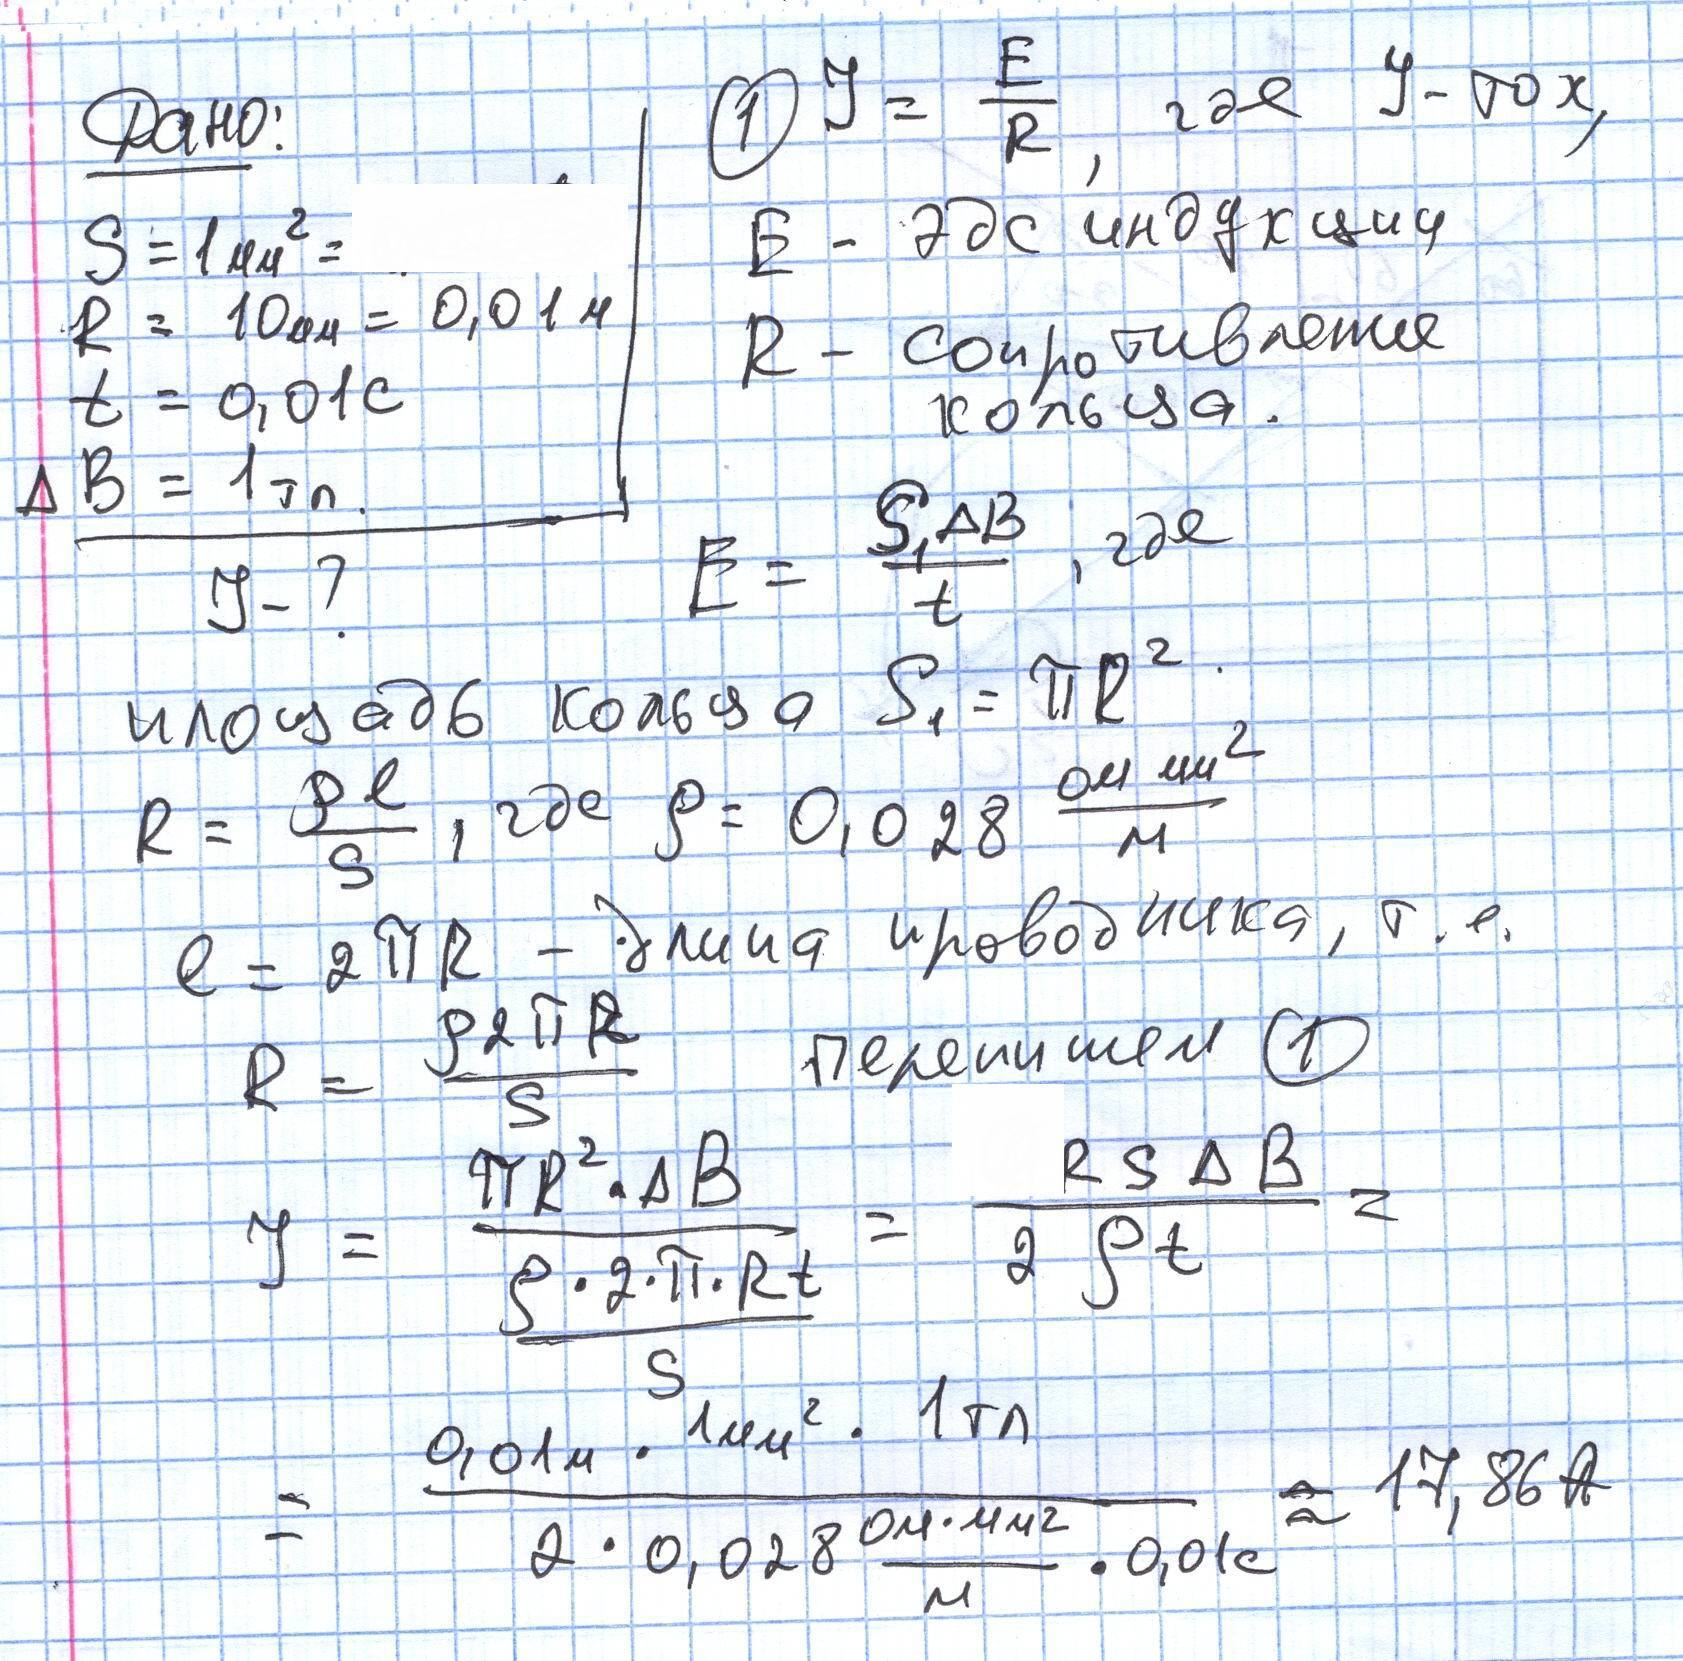 Дано:
S = 1мм² =
R = 10мм = 0,01м
t = 0,01с
Δ B = 1тл.
J - ?
① J = E/R, где J - ток,
E - эдс индукции
R - сопротивление
кольца.
E = S₁ΔB/t, где
площадь кольца S₁ = πR².
R = ρl/S, где ρ = 0,028 ом мм²/м
l = 2πR - длина проводника, т.е.
R = ρ2πR/S перепишем ①
J = πR²·ΔB/(ρ·2·π·Rt/S) = RSΔB/2ρt =
= 0,01м · 1мм² · 1тл/(2 · 0,028 ом·мм²/м · 0,01с) ≈ 17,86А